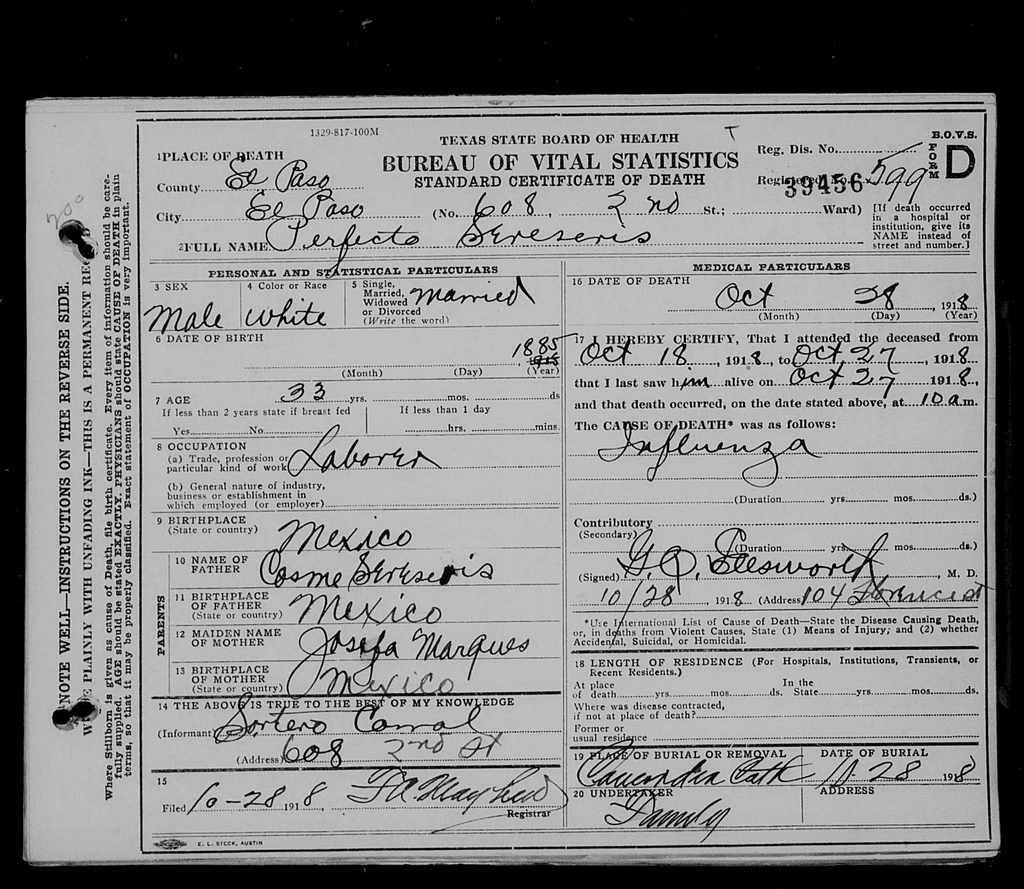 1329-817-100M
TEXAS STATE BOARD OF HEALTH
BUREAU OF VITAL STATISTICS
STANDARD CERTIFICATE OF DEATH
B.O.V.S.
FORM D
Reg. Dis. No.
Registered No. 599
39456
1 PLACE OF DEATH
County El Paso
City El Paso (No. 608, 2nd St.; Ward)
[If death occurred in a hospital or institution, give its NAME instead of street and number.]
2 FULL NAME Perfecto Sereseris
PERSONAL AND STATISTICAL PARTICULARS
3 SEX Male
4 Color or Race White
5 Single, Married, Widowed or Divorced (Write the word) Married
6 DATE OF BIRTH 1885
(Month) (Day) (Year)
7 AGE 33 yrs. mos. ds
If less than 2 years state if breast fed
Yes No
If less than 1 day
hrs. mins.
8 OCCUPATION
(a) Trade, profession or particular kind of work Laborer
(b) General nature of industry, business or establishment in which employed (or employer)
9 BIRTHPLACE (State or country) Mexico
PARENTS
10 NAME OF FATHER Cosme Sereseris
11 BIRTHPLACE OF FATHER (State or country) Mexico
12 MAIDEN NAME OF MOTHER Josefa Marques
13 BIRTHPLACE OF MOTHER (State or country) Mexico
14 THE ABOVE IS TRUE TO THE BEST OF MY KNOWLEDGE
(Informant) Sortero Corral
(Address) 608 2nd St
15
Filed 10-28 1918
Registrar
MEDICAL PARTICULARS
16 DATE OF DEATH
Oct 28, 1918
(Month) (Day) (Year)
17 I HEREBY CERTIFY, That I attended the deceased from
Oct 18, 1918, to Oct 27, 1918
that I last saw him alive on Oct 27 1918,
and that death occurred, on the date stated above, at 10 a m.
The CAUSE OF DEATH* was as follows:
Influenza
(Duration yrs. mos. ds.)
Contributory
(Secondary)
(Duration yrs. mos. ds.)
(Signed) M. D.
10/28 1918 (Address) 104 Florence St
*Use International List of Cause of Death—State the Disease Causing Death, or, in deaths from Violent Causes, State (1) Means of Injury; and (2) whether Accidental, Suicidal, or Homicidal.
18 LENGTH OF RESIDENCE (For Hospitals, Institutions, Transients, or Recent Residents.)
At place of death yrs. mos. ds. In the State yrs. mos. ds.
Where was disease contracted, if not at place of death?
Former or usual residence
19 PLACE OF BURIAL OR REMOVAL
DATE OF BURIAL
10 28 1918
20 UNDERTAKER
Family
ADDRESS
E. L. STECK, AUSTIN
NOTE WELL—INSTRUCTIONS ON THE REVERSE SIDE.
PLAINLY WITH UNFADING INK—THIS IS A PERMANENT
Where Stillborn is given as cause of Death, file birth certificate. Every item of information should be carefully supplied. AGE should be stated EXACTLY. PHYSICIANS should state CAUSE OF DEATH in plain terms, so that it may be properly classified. Exact statement of OCCUPATION is very important.